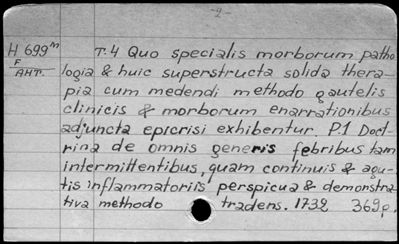 -2-
H 699m T.4 Quo specialis morborum patho-
F logia & huic superstructa solida thera-
AHT. pia cum medendi methodo gautelis
clinicis & morborum enarrationibus
adjuncta epicrisi exhibentur P.1 Doct-
rina de omnis generis febribus tam
intermittentibus, quam continuis & acu-
tis inflammatoriis perspicua & demonstra-
tiva methodo tradens. 1732 369p.